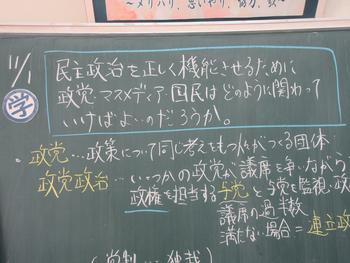 ～メリハリ、思いやり、協力、
11/1
学
民主政治を正しく機能させるために
政党・マスメディア・国民はどのように関わって
いけばよいのだろうか。
・政党…政策について同じ考えをもつ人がつくる団体
政党政治…いくつかの政党が議席を争いながら
政権を担当する与党と与党を監視・政
議席の過半数
満たない場合=連立政
独裁